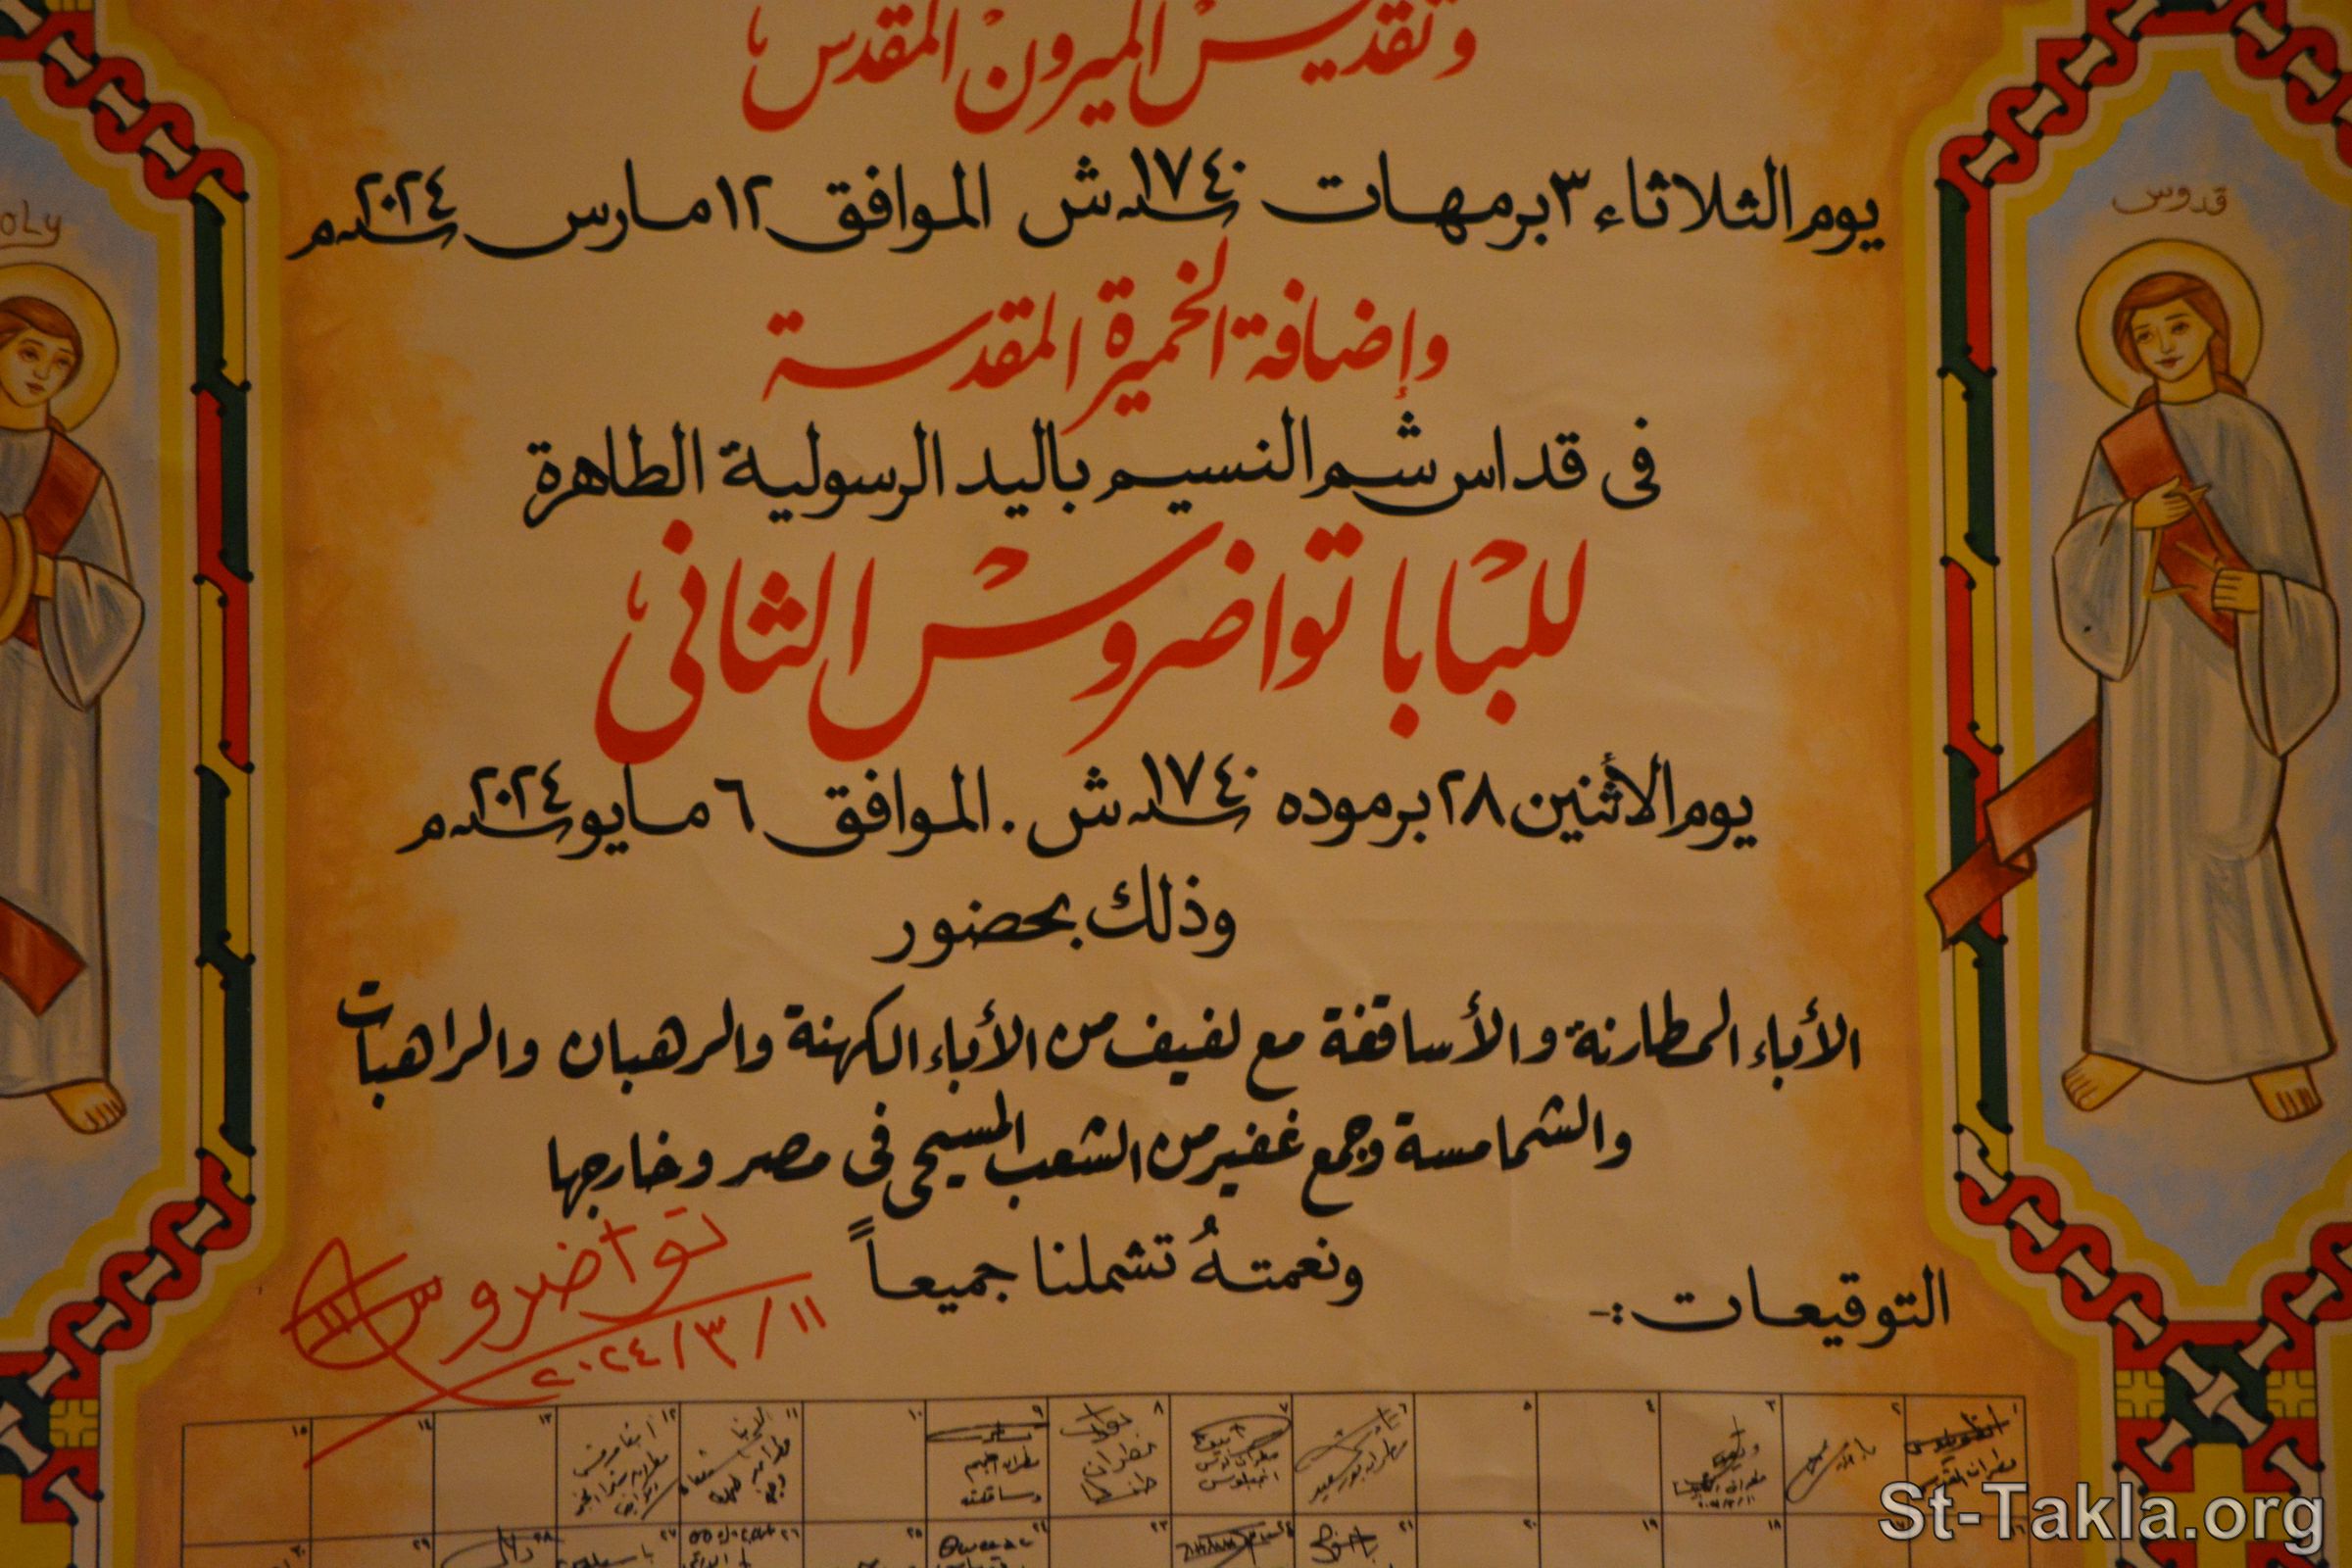 وتقديس الميرون المقدس
يوم الثلاثاء ٣ برمهات سنة ١٧٤٠ ش الموافق ١٢ مارس سنة ٢٠٢٤ م
قدوس
oly
وإضافة الخميرة المقدسة
فى قداس شم النسيم باليد الرسولية الطاهرة
للبابا تواضروس الثانى
يوم الأثنين ٢٨ برموده سنة ١٧٤٠ ش . الموافق ٦ مايو سنة ٢٠٢٤ م
وذلك بحضور
الأباء المطارنة والأساقفة مع لفيف من الأباء الكهنة والرهبان والراهبات
والشمامسة وجمع غفير من الشعب المسيحى فى مصر وخارجها
ونعمتهُ تشملنا جميعاً
التوقيعات :-
تواضروس
١١ / ٣ / ٢٠٢٤
١ ٢ ٣ ٤ ٥ ٦ ٧ ٨ ٩ ١٠ ١١ ١٢ ١٣ ١٤ ١٥
١٨ ١٩ ٢٠ ٢١ ٢٣ ٢٤ ٢٥ ٢٦ ٢٧ ٢٨ ٢٩ ٣٠
St-Takla.org